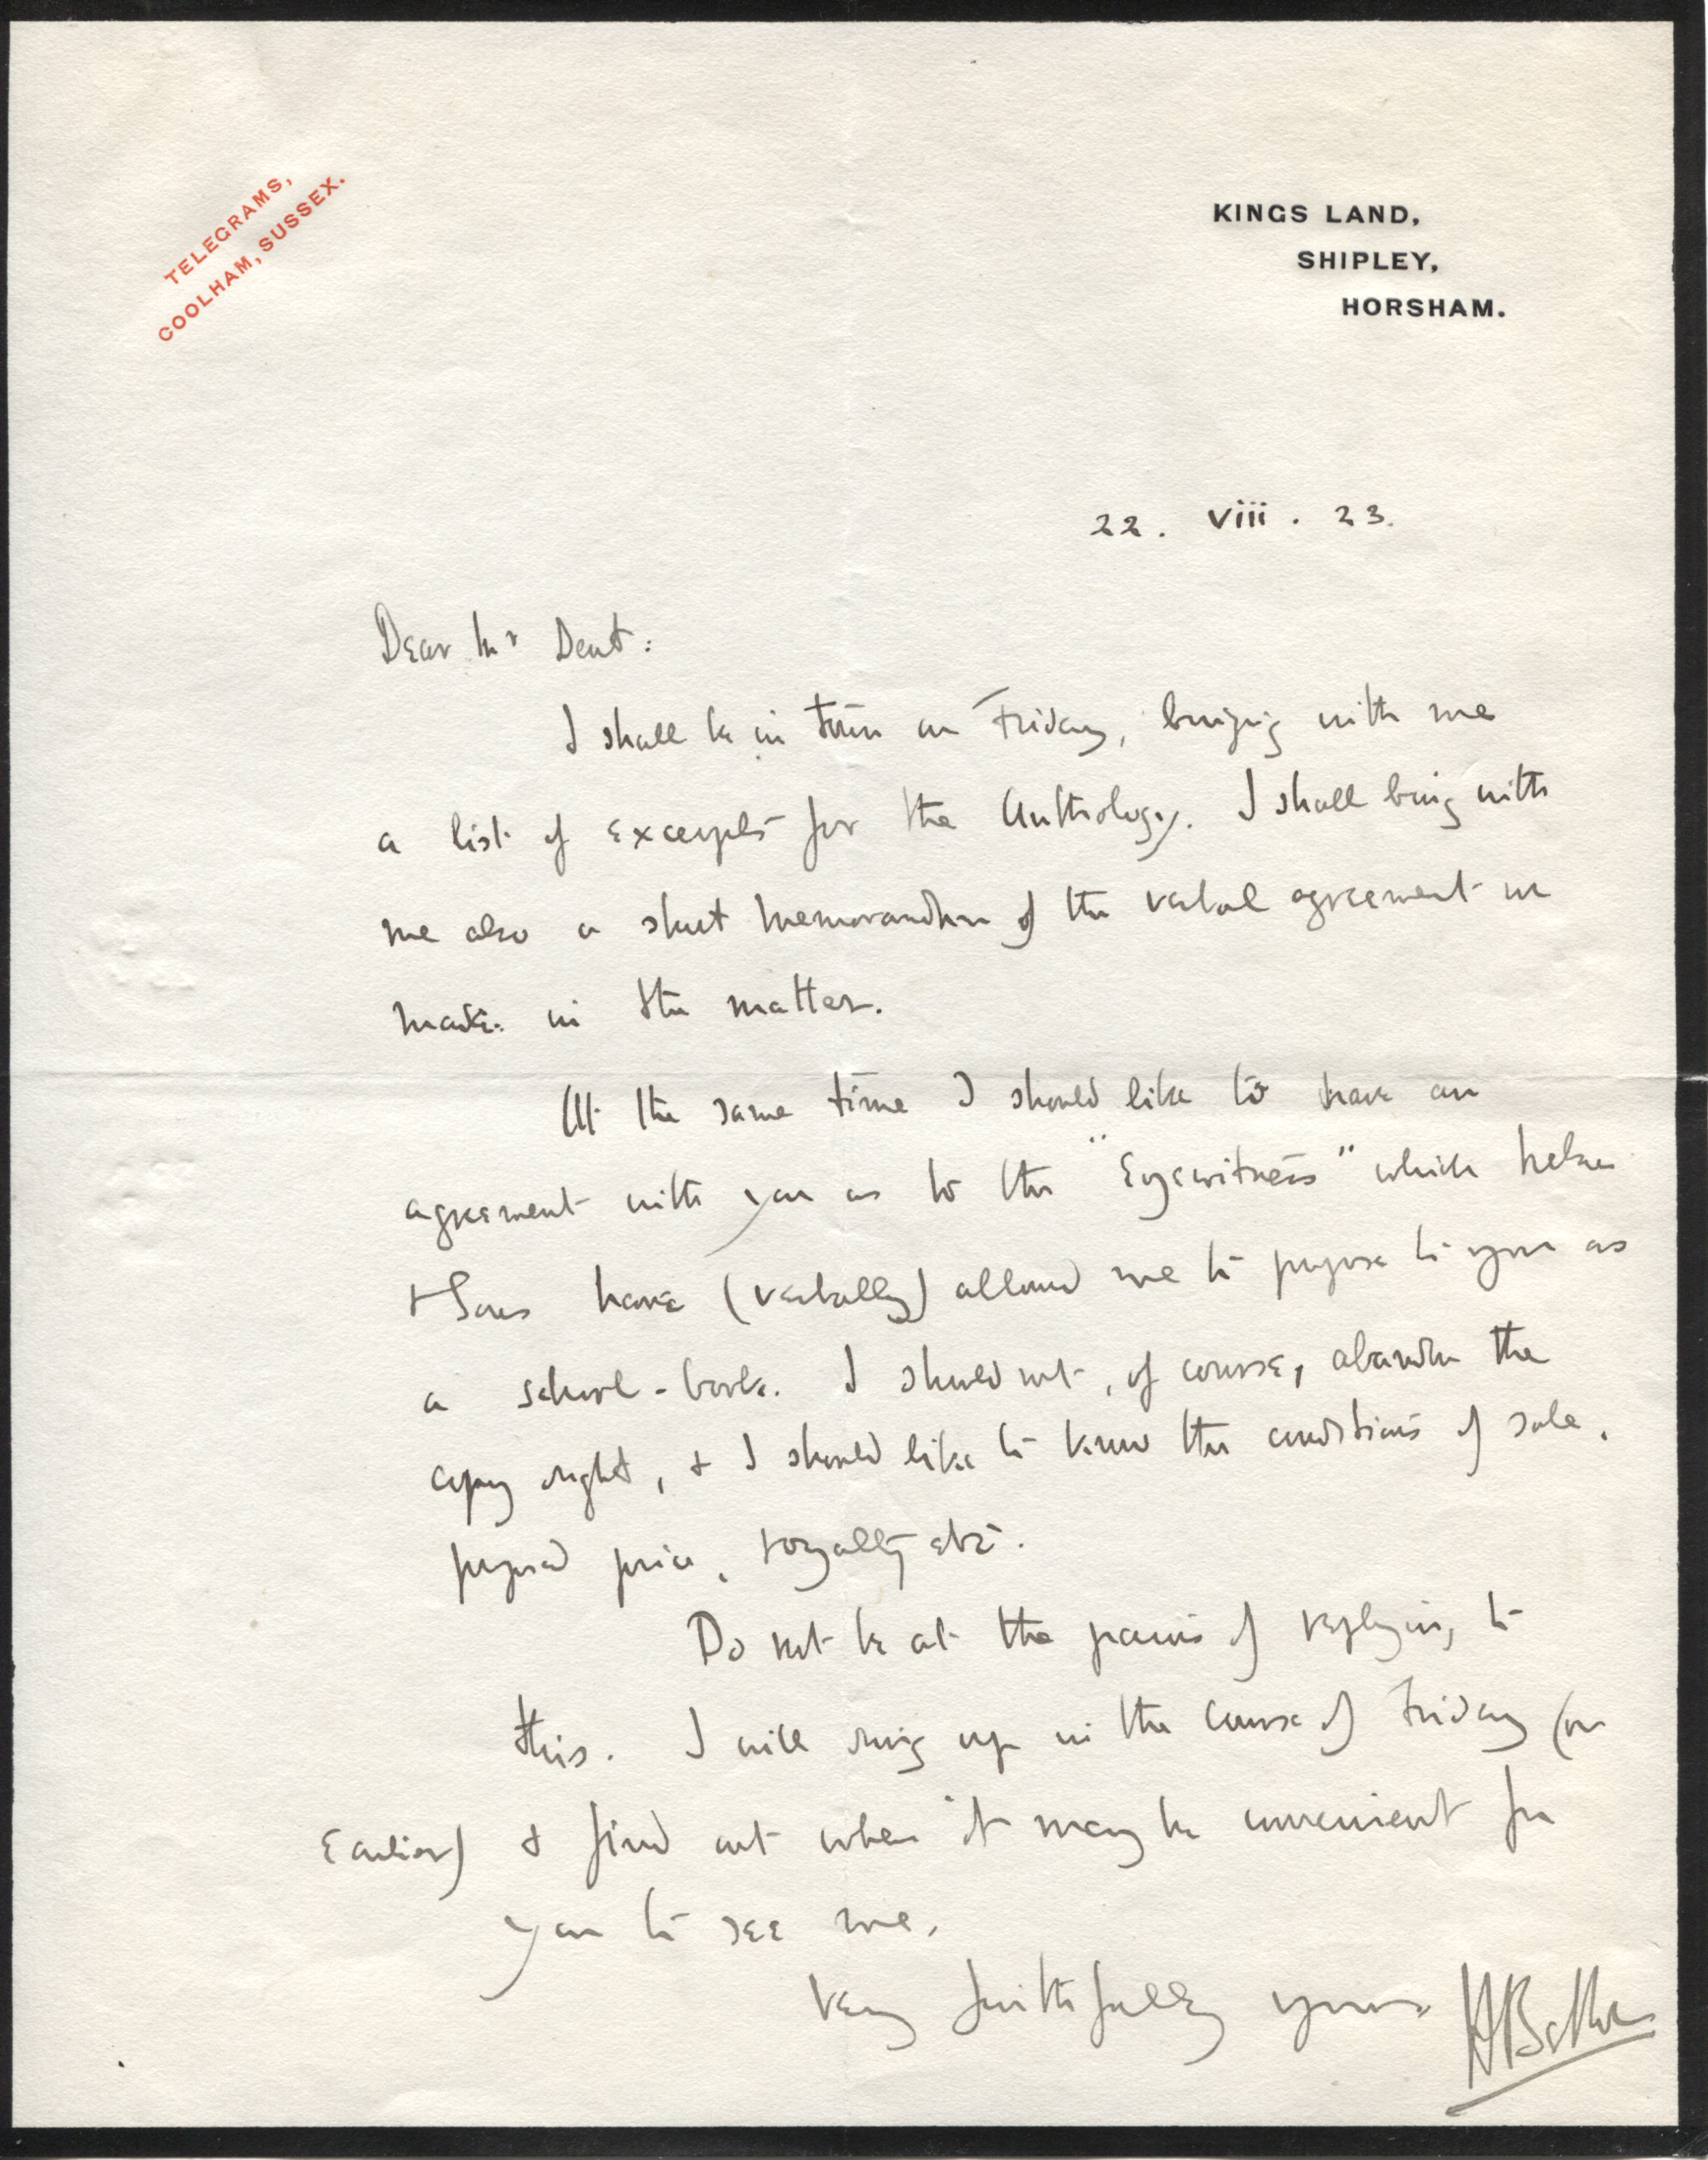 TELEGRAMS,
COOLHAM, SUSSEX.
KINGS LAND,
SHIPLEY,
HORSHAM.
22. viii. 23.
Dear Mr Dent:
I shall be in town on Friday, bringing with me
a list of excerpts for the Anthology. I shall bring with
me also a short memorandum of the verbal agreement we
made in the matter.
At the same time I should like to have an
agreement with you as to the "Eyewitness" which
have (verbally) allowed me to propose to you as
a school-book. I should not, of course, abandon the
copy right, & I should like to know the conditions of sale,
proposed price, royalty etc.
Do not be at the pains of replying to
this. I will ring up in the course of Friday (or
earlier) & find out when it may be convenient for
you to see me.
Very faithfully yours HBelloc